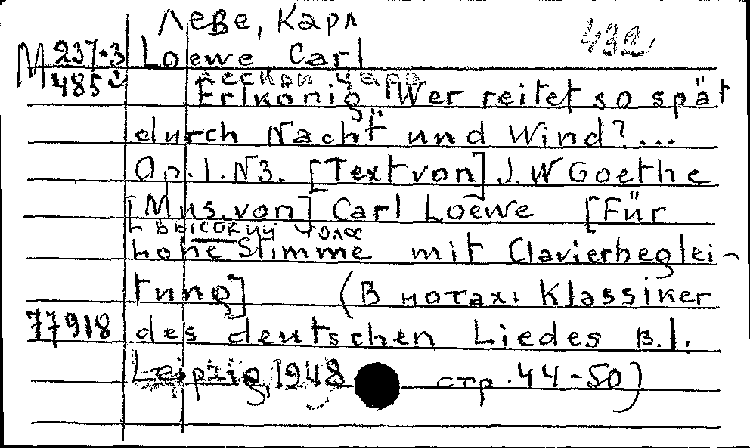 Леве, Карл
432
М 237-3 Loewe Carl
485 Лесной царь
Erlkönig "Wer reitet so spät
durch Nacht und Wind?...
Op. 1. N3. [Text von] J. W Goethe
[Mus. von] Carl Loewe [Für
высокий голос
hohe Stimme mit Clavierbeglei-
tung] (В нотах: Klassiker
77918 des deutschen Liedes B. I.
Leipzig, 1948 стр. 44-50)